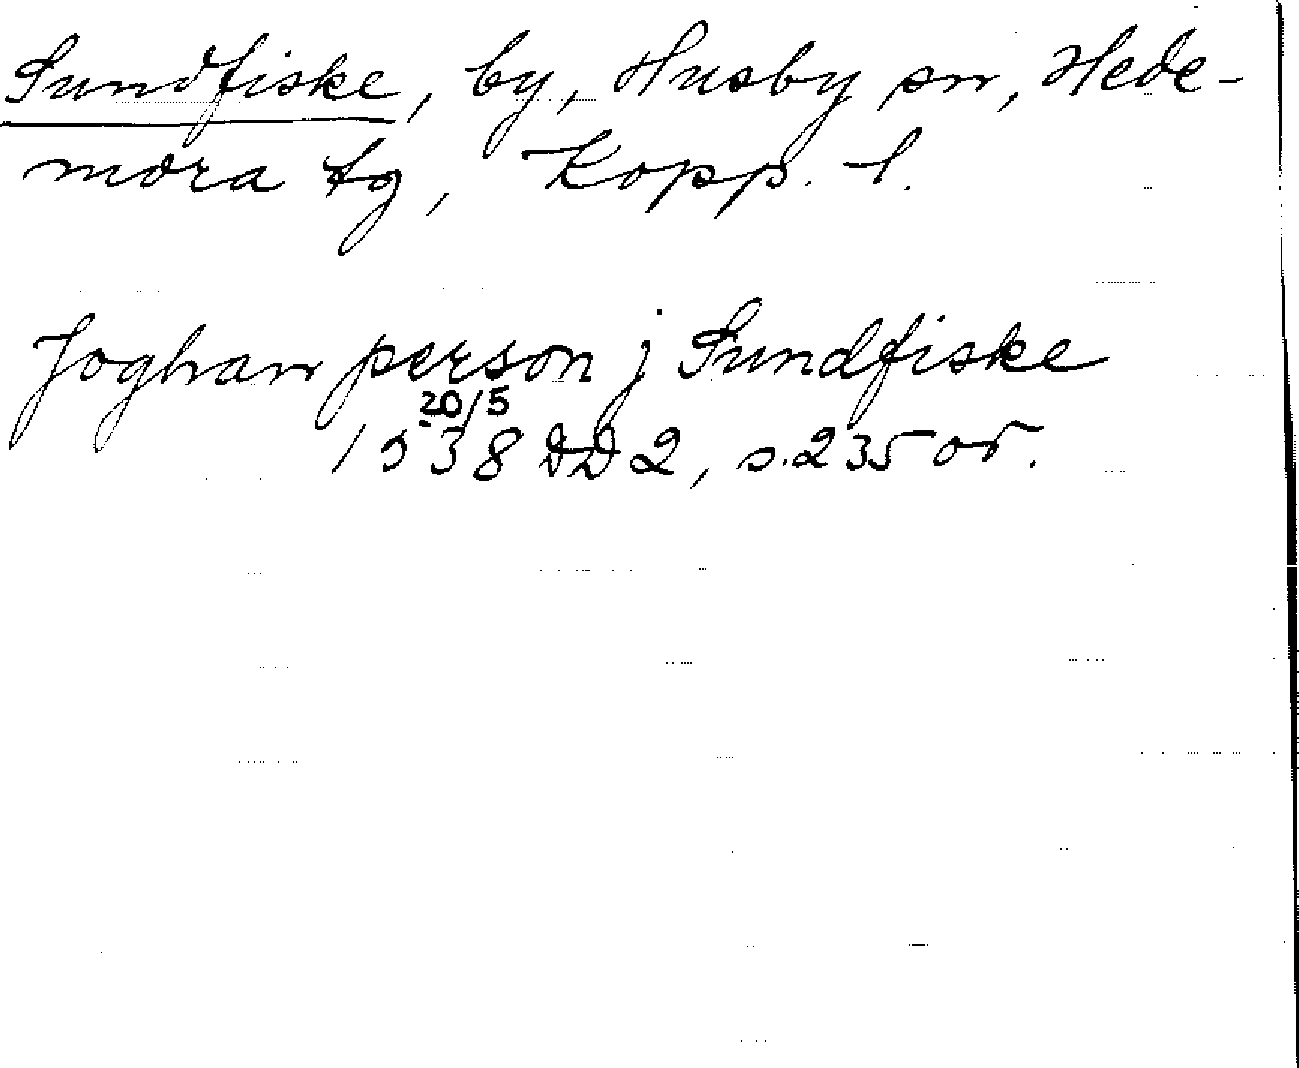 Sundfiske, by, Husby sn, Hede-
mora tg, Kopp. l.
Joghan person j Sundfiske
20/5
1538 DD 2, s. 235 or.